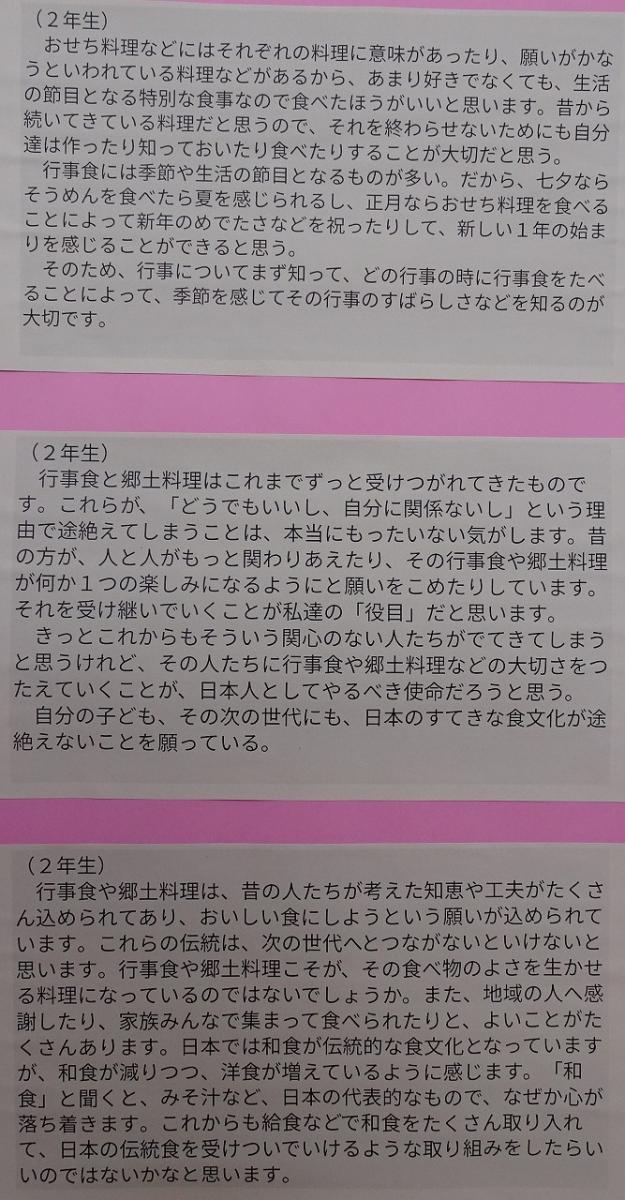 （２年生）
　おせち料理などにはそれぞれの料理に意味があったり、願いがかな
うといわれている料理などがあるから、あまり好きでなくても、生活
の節目となる特別な食事なので食べたほうがいいと思います。昔から
続いてきている料理だと思うので、それを終わらせないためにも自分
達は作ったり知っておいたり食べたりすることが大切だと思う。
　行事食には季節や生活の節目となるものが多い。だから、七夕なら
そうめんを食べたら夏を感じられるし、正月ならおせち料理を食べる
ことによって新年のめでたさなどを祝ったりして、新しい１年の始ま
りを感じることができると思う。
　そのため、行事についてまず知って、どの行事の時に行事食をたべ
ることによって、季節を感じてその行事のすばらしさなどを知るのが
大切です。
（２年生）
　行事食と郷土料理はこれまでずっと受けつがれてきたもので
す。これらが、「どうでもいいし、自分に関係ないし」という理
由で途絶えてしまうことは、本当にもったいない気がします。昔
の方が、人と人がもっと関わりあえたり、その行事食や郷土料理
が何か１つの楽しみになるようにと願いをこめたりしています。
それを受け継いでいくことが私達の「役目」だと思います。
　きっとこれからもそういう関心のない人たちがでてきてしまう
と思うけれど、その人たちに行事食や郷土料理などの大切さをつ
たえていくことが、日本人としてやるべき使命だろうと思う。
　自分の子ども、その次の世代にも、日本のすてきな食文化が途
絶えないことを願っている。
（２年生）
　行事食や郷土料理は、昔の人たちが考えた知恵や工夫がたくさ
ん込められてあり、おいしい食にしようという願いが込められて
います。これらの伝統は、次の世代へとつながないといけないと
思います。行事食や郷土料理こそが、その食べ物のよさを生かせ
る料理になっているのではないでしょうか。また、地域の人へ感
謝したり、家族みんなで集まって食べられたりと、よいことがた
くさんあります。日本では和食が伝統的な食文化となっています
が、和食が減りつつ、洋食が増えているように感じます。「和
食」と聞くと、みそ汁など、日本の代表的なもので、なぜか心が
落ち着きます。これからも給食などで和食をたくさん取り入れ
て、日本の伝統食を受けついでいけるような取り組みをしたらい
いのではないかなと思います。